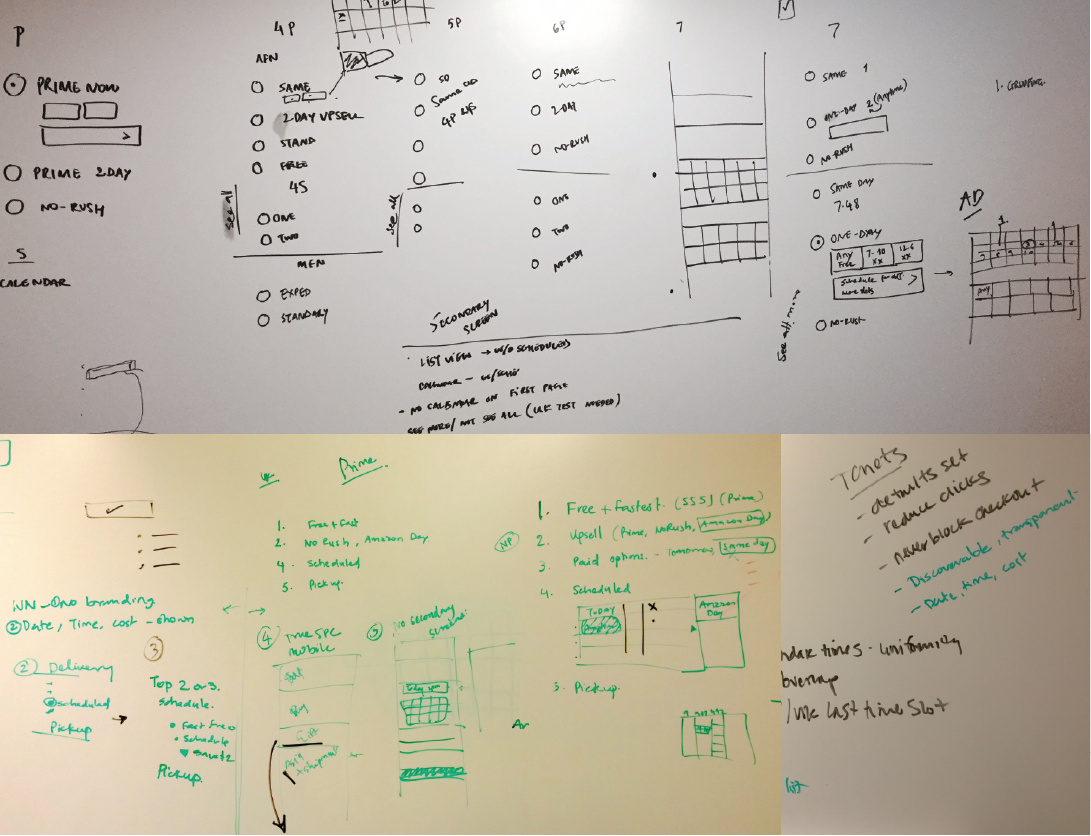 P
PRIME NOW
PRIME 2DAY
NO-RUSH
S
CALENDAR
4P
AFN
SAME
2-DAY UPSELL
STAND
FREE
4S
see all
ONE
TWO
MFN
EXPED
STANDARY
5P
SD
Same
4P
see all
6P
SAME
2-DAY
NO-RUSH
ONE
TWO
NO-RUSH
SECONDARY
SCREEN
LIST VIEW → W/O SCHEDULED
CALENDAR - W/
- NO CALENDAR ON FIRST PAGE
SEE MORE/ NOT SEE ALL (UX TEST NEEDED)
7
7
SAME 1
ONE-DAY 2 (Anytime)
NO-RUSH
SAME DAY
7.48
ONE-DAY
Any Free
7-10 XX
12-6 XX
Schedule for
more slots
See all more
NO-RUSH
1. GROUPING.
AD
1.
Any
NN - No branding
② Date, Time, cost - shown
② Delivery
scheduled
Pickup
③
Top 2 or 3.
schedule.
• Fast Free
• Schedule
Pickup.
Prime.
1. Free + Fast
2. No Rush, Amazon Day
4. Scheduled
5. Pickup.
④ True SPC
mobile
No secondary
screen.
1. Free + Fastest. (SSS) (Prime)
2. Upsell (Prime, NoRush, Amazon Day)
3. Paid options. - Tomorrow, Same day
4. Scheduled
TODAY
X
Amazon
Day
5. Pickup.
Tenets
- defaults set
- reduce clicks
- never block checkout
- Discoverable, transparent-
- Date, time, cost
times - uniformity
overlap
last time slot